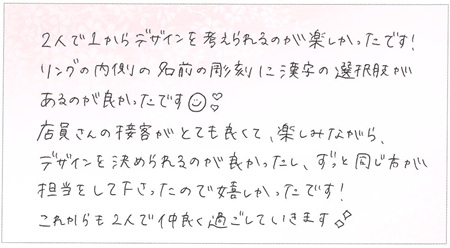 2人で1からデザインを考えられるのが楽しかったです!
リングの内側の名前の彫刻に漢字の選択肢が
あるのが良かったです☺♡
店員さんの接客がとても良くて、楽しみながら、
デザインを決められるのが良かったし、ずっと同じ方が
担当をして下さったので嬉しかったです!
これからも2人で仲良く過ごしていきます♡